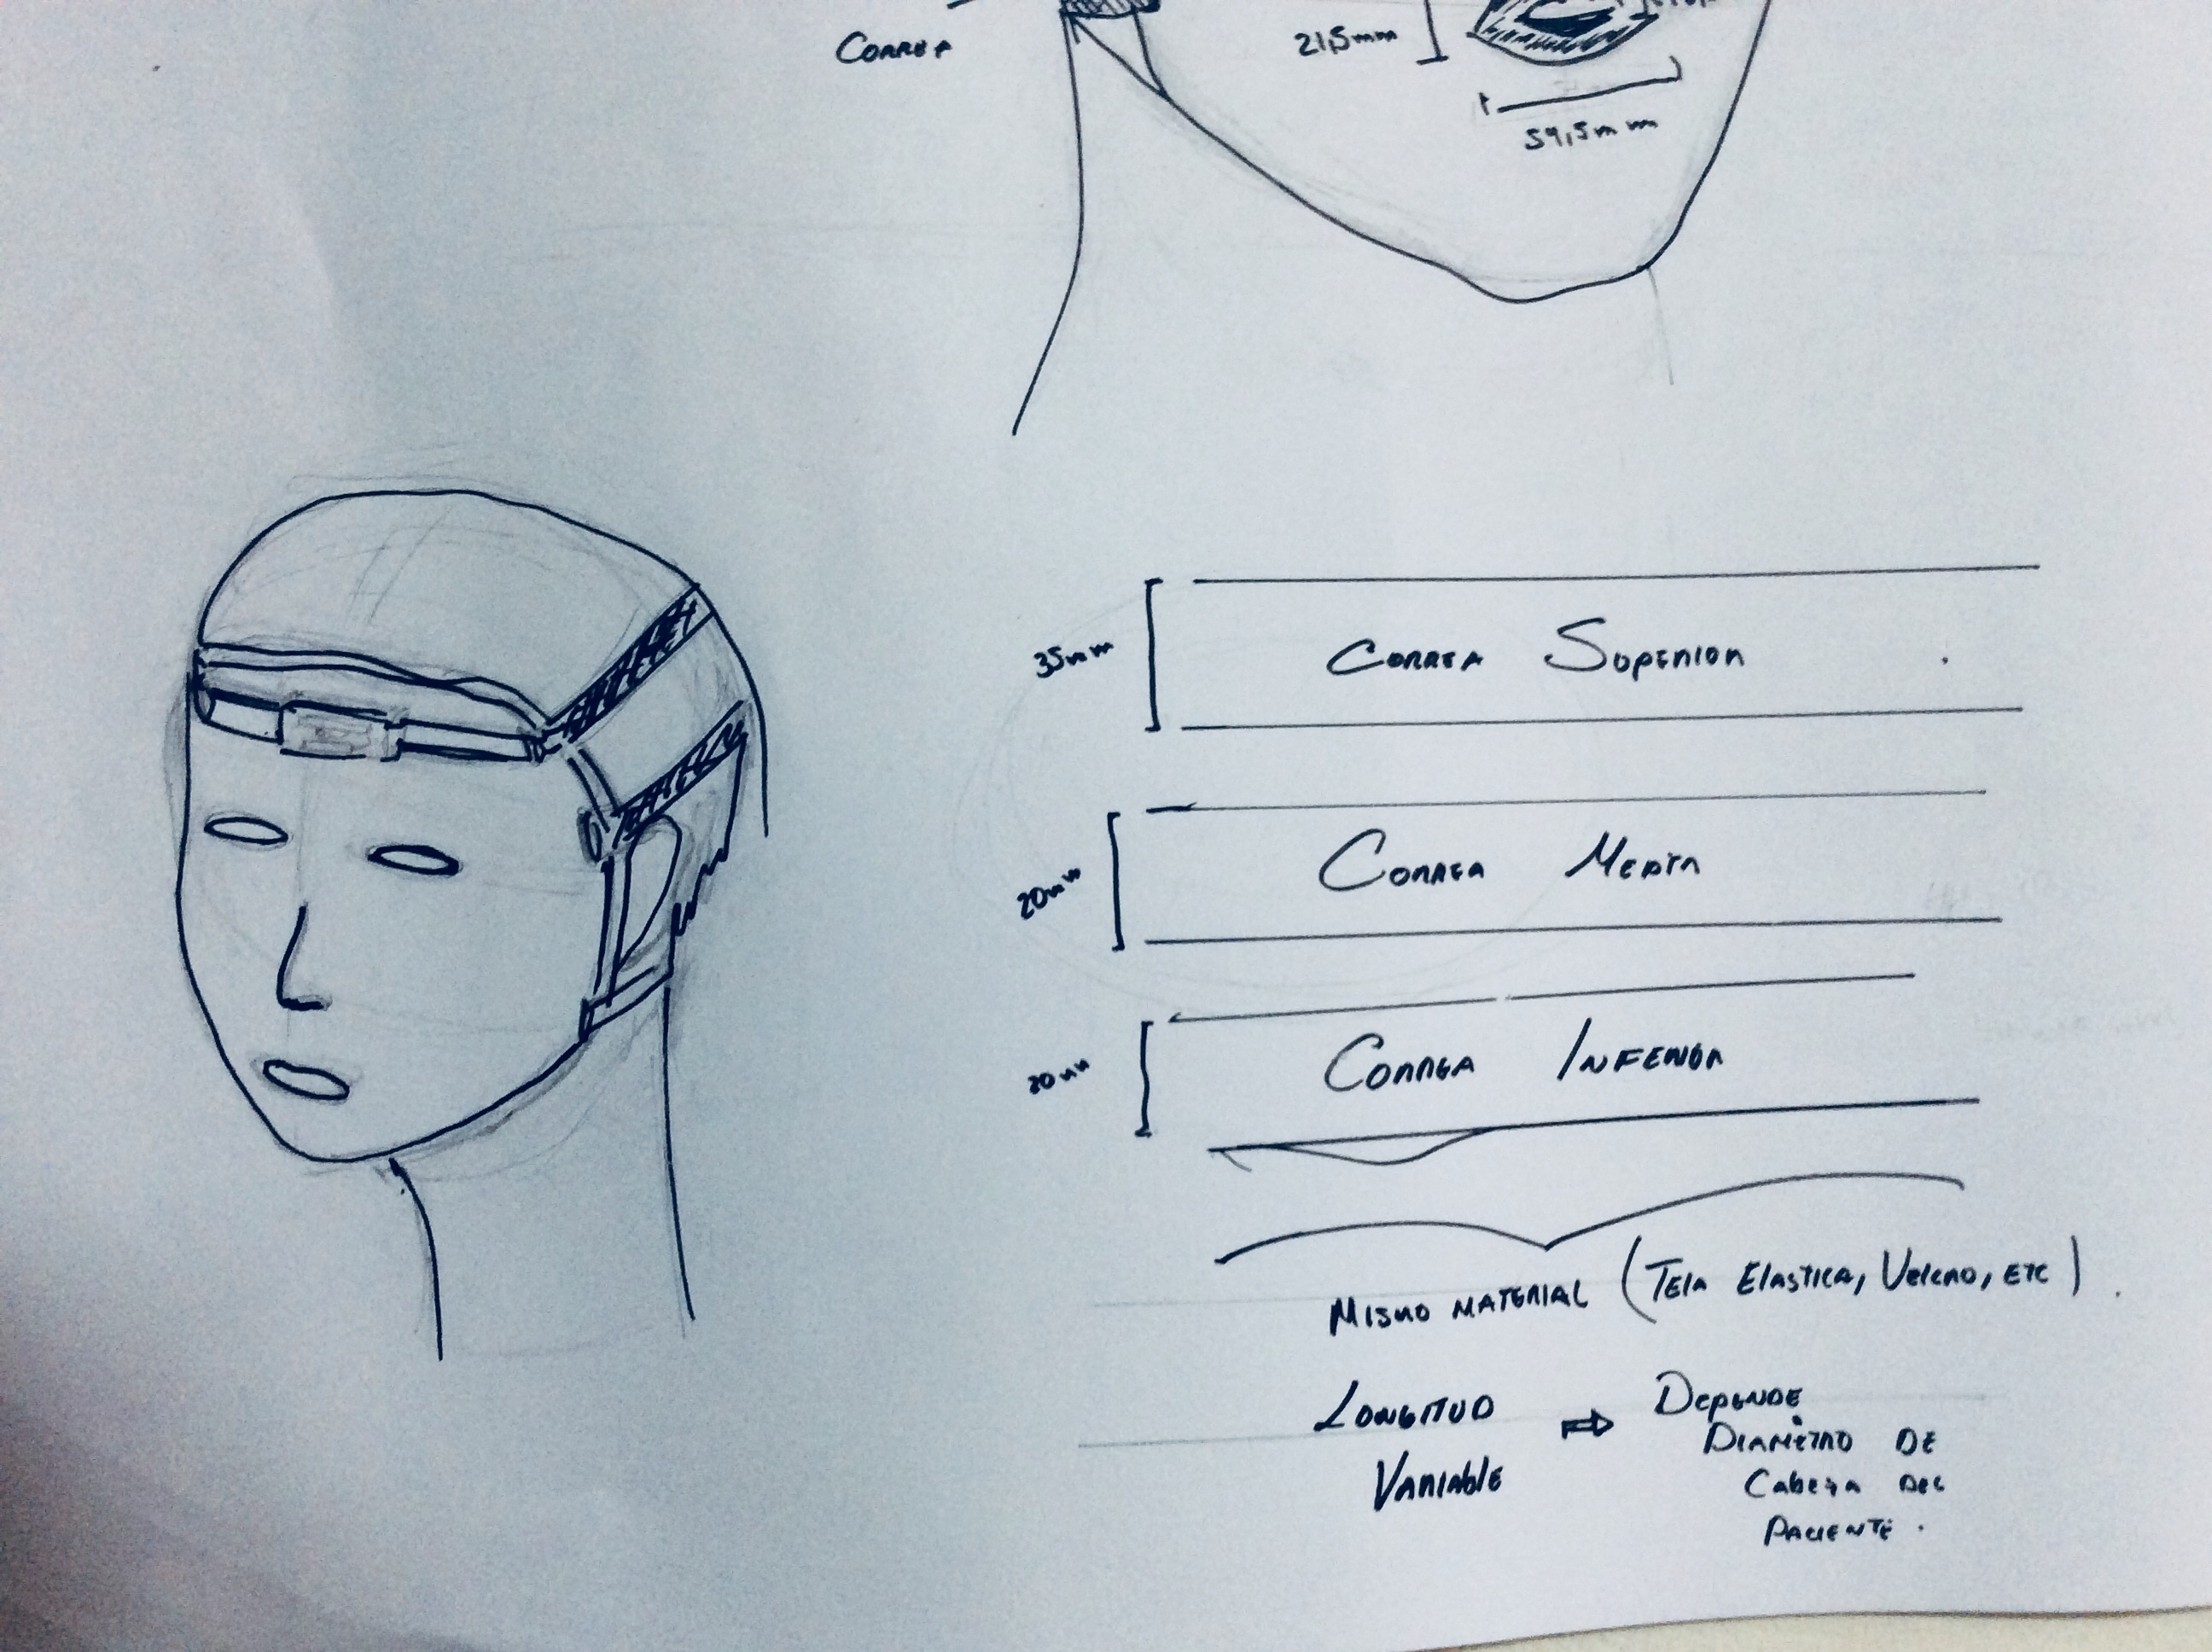 CORREA
21,5mm
59,5mm
35mm
CORREA SUPERIOR
20mm
CORREA MEDIA
20mm
CORREA INFERIOR
MISMO MATERIAL (TELA ELASTICA, VELCRO, ETC).
LONGITUD VARIABLE ⇒ DEPENDE
DIAMETRO DE
CABEZA DEL
PACIENTE.